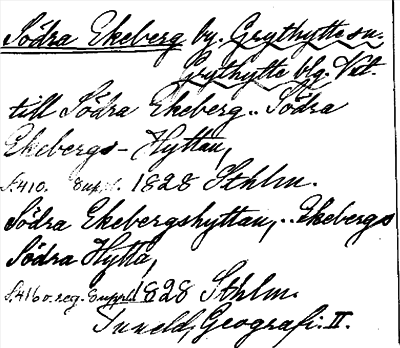 Södra Ekeberg by. Grythytte sn.
Grythytte blg. Vstm.
till Södra Ekeberg.. Södra
Ekebergs-Hyttan,
S.410. Suppl. 1828 Sthlm.
Södra Ekebergshyttan,.. Ekebergs
Södra Hytta,
S.416 o. reg. Suppl. 1828 Sthlm.
Tuneld, Geografi. II.